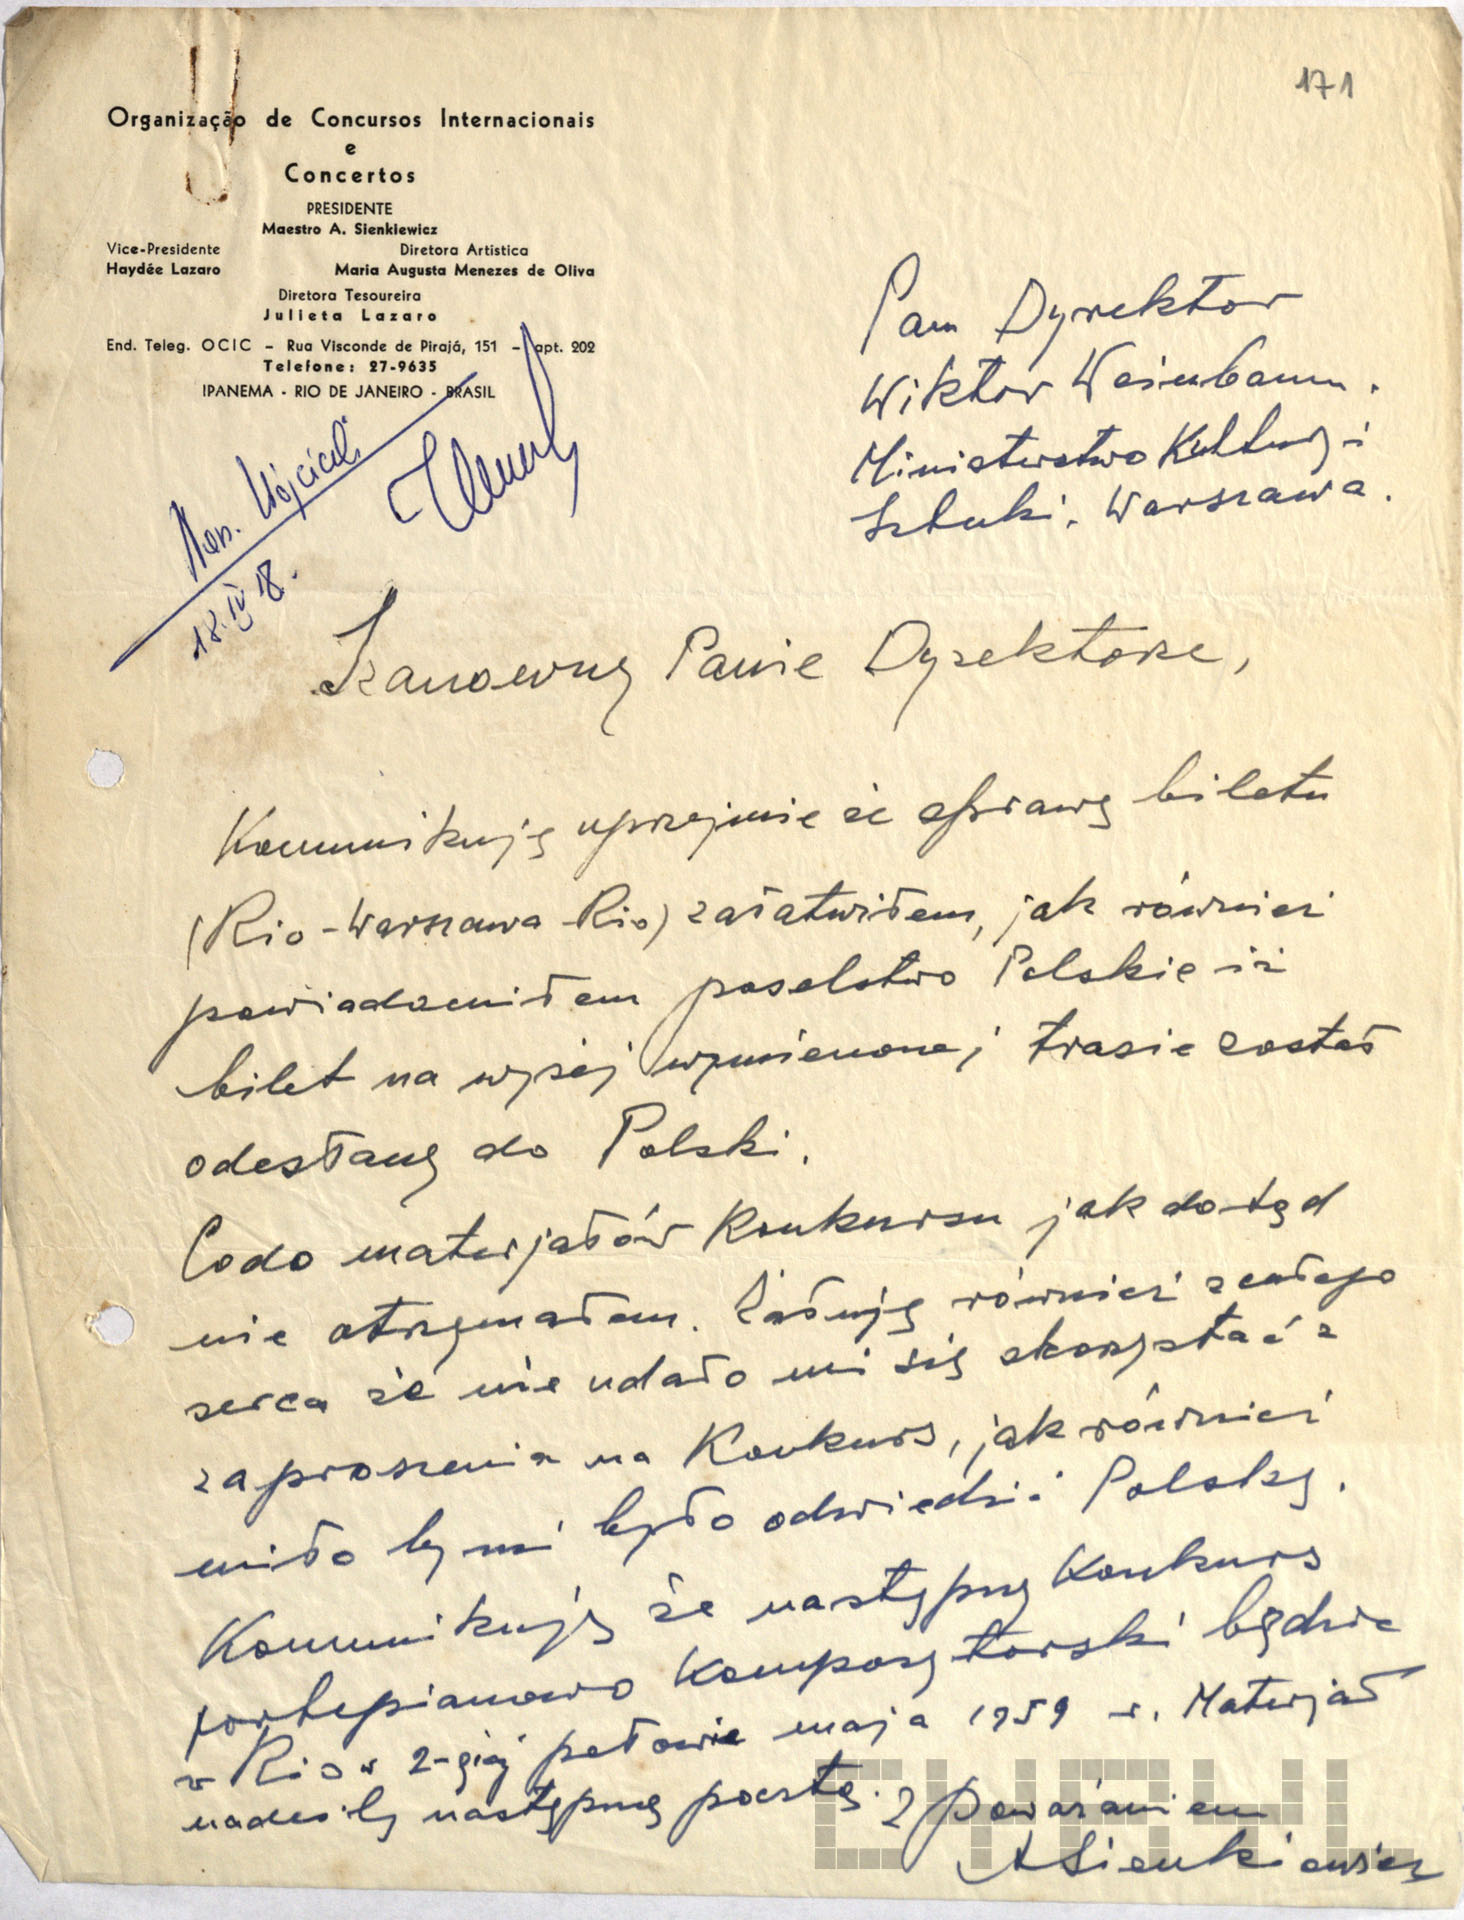 171
Organização de Concursos Internacionais
e
Concertos
PRESIDENTE
Maestro A. Sienkiewicz
Vice-Presidente Diretora Artistica
Haydée Lazaro Maria Augusta Menezes de Oliva
Diretora Tesoureira
Julieta Lazaro
End. Teleg. OCIC – Rua Visconde de Pirajá, 151 – apt. 202
Telefone: 27-9635
IPANEMA - RIO DE JANEIRO - BRASIL
Pan Dyrektor
Wiktor Weinbaum.
Ministerstwo Kultury i
Sztuki. Warszawa.
18.IV
Szanowny Panie Dyrektorze,
Komunikuję uprzejmie że sprawę biletu
(Rio-Warszawa-Rio) załatwiłem, jak również
powiadomiłem poselstwo Polskie iż
bilet na wyżej wymienonej trasie został
odesłany do Polski.
Codo materjałów Konkursu jak dotąd
nie otrzymałem. Żałuję również z całego
serca że nie udało mi się skorzystać z
zaproszenia na Konkurs, jak również
miło by mi było odwiedzić Polskę.
Komunikuję że następny Konkurs
fortepianowo Kompozytorski będzie
w Rio w 2-giej połowie maja 1959 r. Materjał
nadeślę następną pocztą. Z poważaniem
A Sienkiewicz